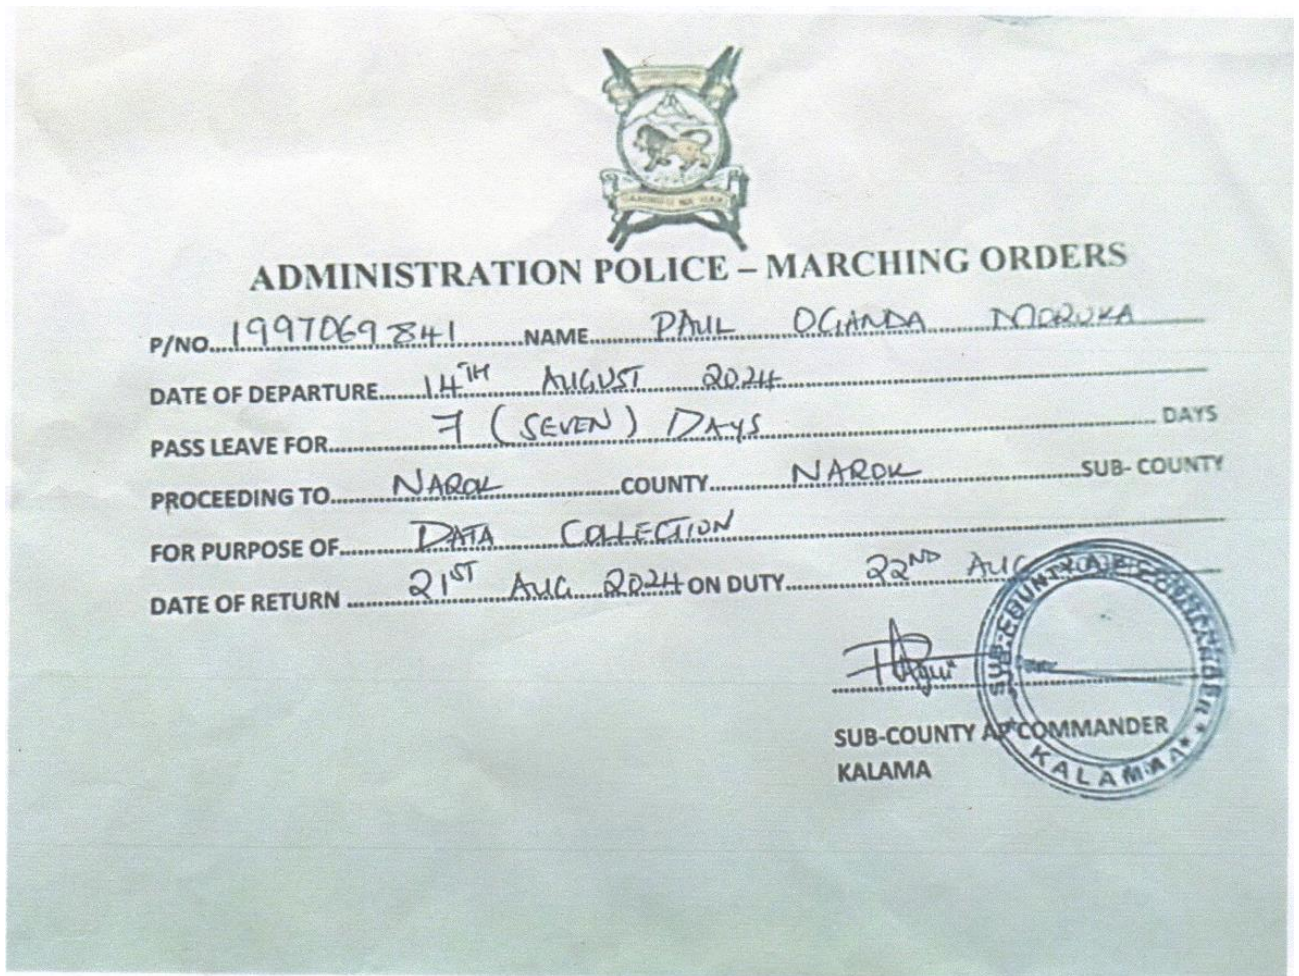 ADMINISTRATION POLICE – MARCHING ORDERS
P/NO. 1997069841 NAME PAUL OGANDA
DATE OF DEPARTURE 14TH AUGUST 2024
PASS LEAVE FOR 7 (SEVEN) DAYS DAYS
PROCEEDING TO NAROK COUNTY NAROK SUB- COUNTY
FOR PURPOSE OF DATA COLLECTION
DATE OF RETURN 21ST AUG 2024 ON DUTY 22ND AUG
SUB-COUNTY A.P COMMANDER
KALAMA
SUB-COUNTY AP COMMANDER
KALAMA